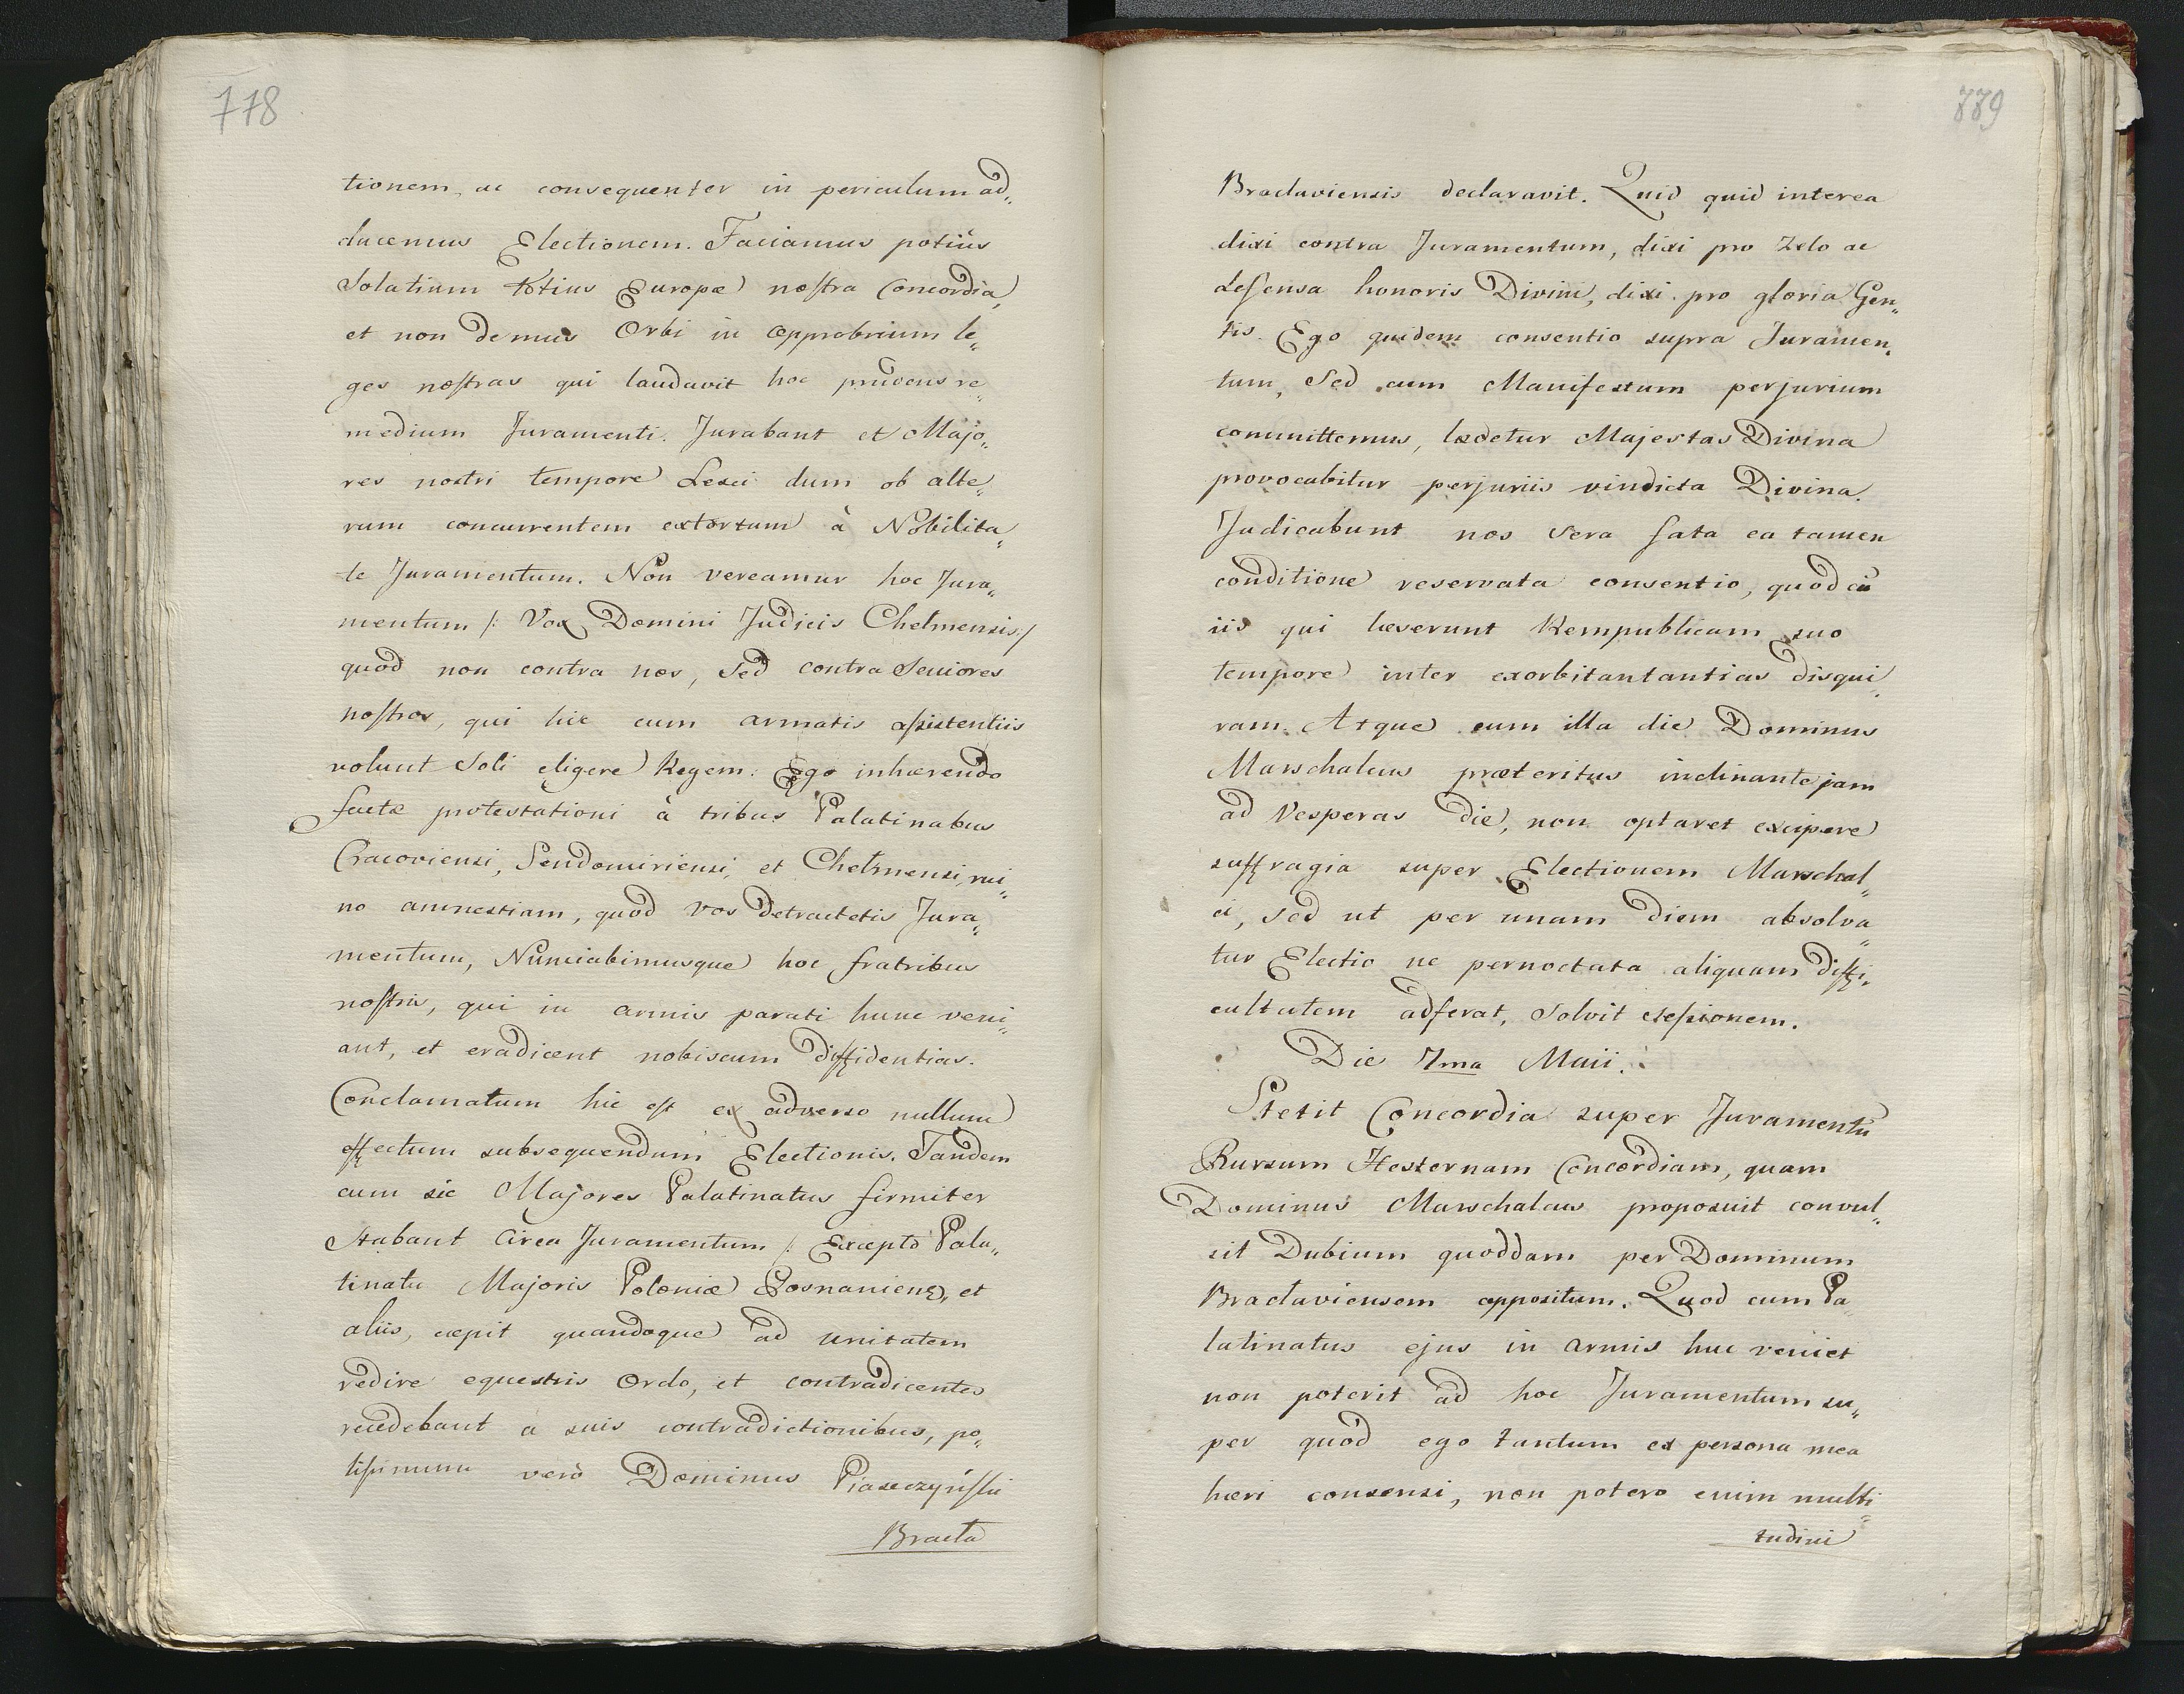 778
tionem, ac consequenter in periculum ad„
ducemus Electionem. Faciamus potiùs
Solatium totius Europæ nostra Concordia,
et non demus Orbi in opprobrium le„
ges nostras qui laudavit hoc prudens re„
medium Juramenti. Jurabant et Majo„
res nostri tempore Lesci dum ob alte„
rum concurrentem extortum à Nobilita„
te Juramentum. Non vereamur hoc Jura„
mentum /: Vox Domini Judicis Chelmensis :/
quod non contra nos, sed contra Seniores
nostros, qui hic cum armatis assistentiis
volunt Soli eligere Regem: Ego inhærendo
factæ protestationi à tribus Palatinabus
Cracoviensi, Sendomiriensi, et Chelmensi, rui„
no amnestiam, quod vos detractetis Jura„
mentum, Nunciabimusque hoc fratribus
nostris, qui in armis parati hunc veni„
ant, et eradicent nobiscum diffidentias.
Conclamatum hic est ex adverso nullum
effectum subsequendum Electionis. Tandem
cum sic Majores Palatinatus firmiter
stabant circa Juramentum /: Excepto Pala„
tinatu Majoris Poloniæ Posnaniens, et
aliis, cæpit quandoque ad unitatem
redire equestris Ordo, et contradicentes
recedebant a suis contradictionibus, po„
tissimum verò Dominus Piaseczyński
Bracla
779
Braclaviensis declaravit. Quid quid interea
dixi contra Juramentum, dixi pro Zelo ac
defensa honoris Divini, dixi pro gloria Gen„
tis. Ego quidem consentio supra Juramen„
tum, Sed cum Manifestum perjurium
committemus, lædetur Majestas Divina
provocabitur perjuriis vindicta Divina.
Judicabunt nos sera fata ea tamen
conditione reservata consentio, quod cũ
iis qui læserunt Rempublicam suo
tempore inter exorbitantantias disqui„
ram. Atque cum illa die Dominus
Marschalcus præteritus inclinante jam
ad Vesperas die, non optaret excipere
suffragia super Electionem Marschal„
ci, sed ut per unam diem absolva„
tur Electio ne pernoctata aliquam diffi„
cultatem adferat, Solvit sessionem.
Die 7ma Maii.
Stetit Concordia super Juramentũ
Rursum Hesternam Concordiam, quam
Dominus Marschalcus proposuit convul„
sit Dubium quoddam per Dominum
Braclaviensem oppositum. Quod cum Pa„
latinatus ejus in armis huc veniet
non poterit ad hoc Juramentum su„
per quod ego tantum ex persona mea
hæri consensi, non potero enim multi„
tudini